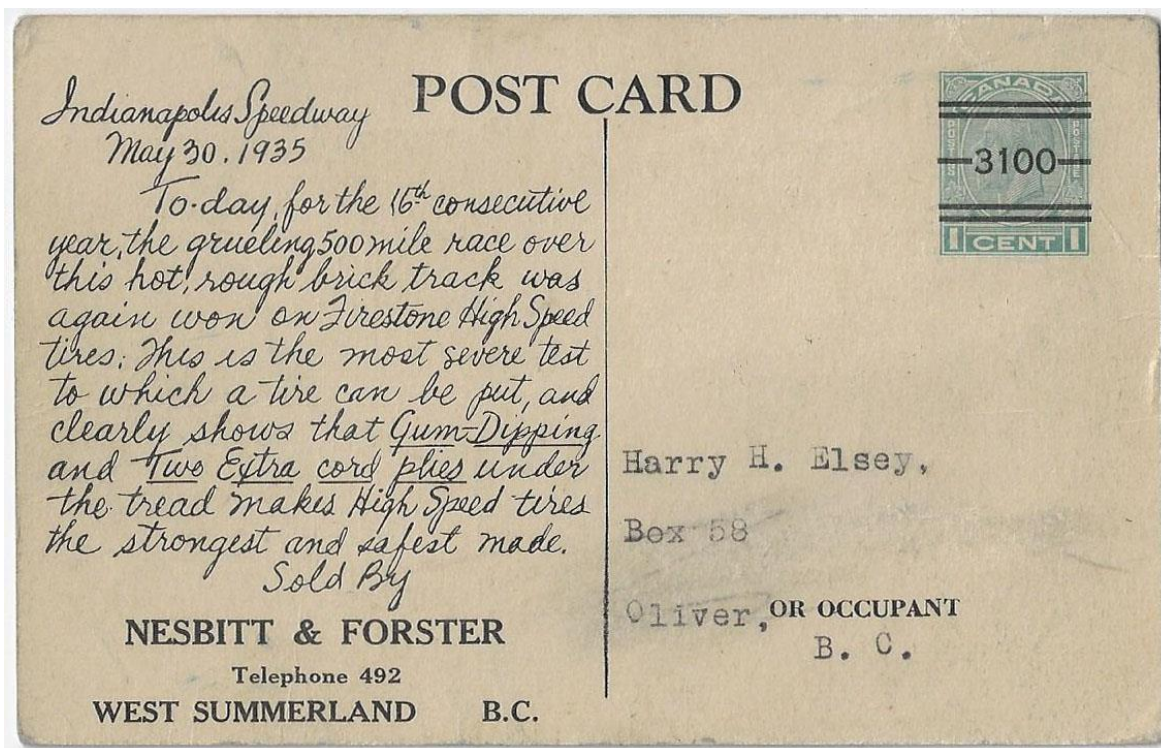 POST CARD
Indianapolis Speedway
May 30. 1935
To-day, for the 16th consecutive
year, the grueling 500 mile race over
this hot, rough brick track was
again won on Firestone High Speed
tires. This is the most severe test
to which a tire can be put, and
clearly shows that Gum-Dipping
and Two Extra cord plies under
the tread makes High Speed tires
the strongest and safest made.
Sold By
NESBITT & FORSTER
Telephone 492
WEST SUMMERLAND B.C.
CANADA
POSTES POSTAGE
3100
1 CENT 1
Harry H. Elsey,
Box 58
Oliver, OR OCCUPANT
B. C.